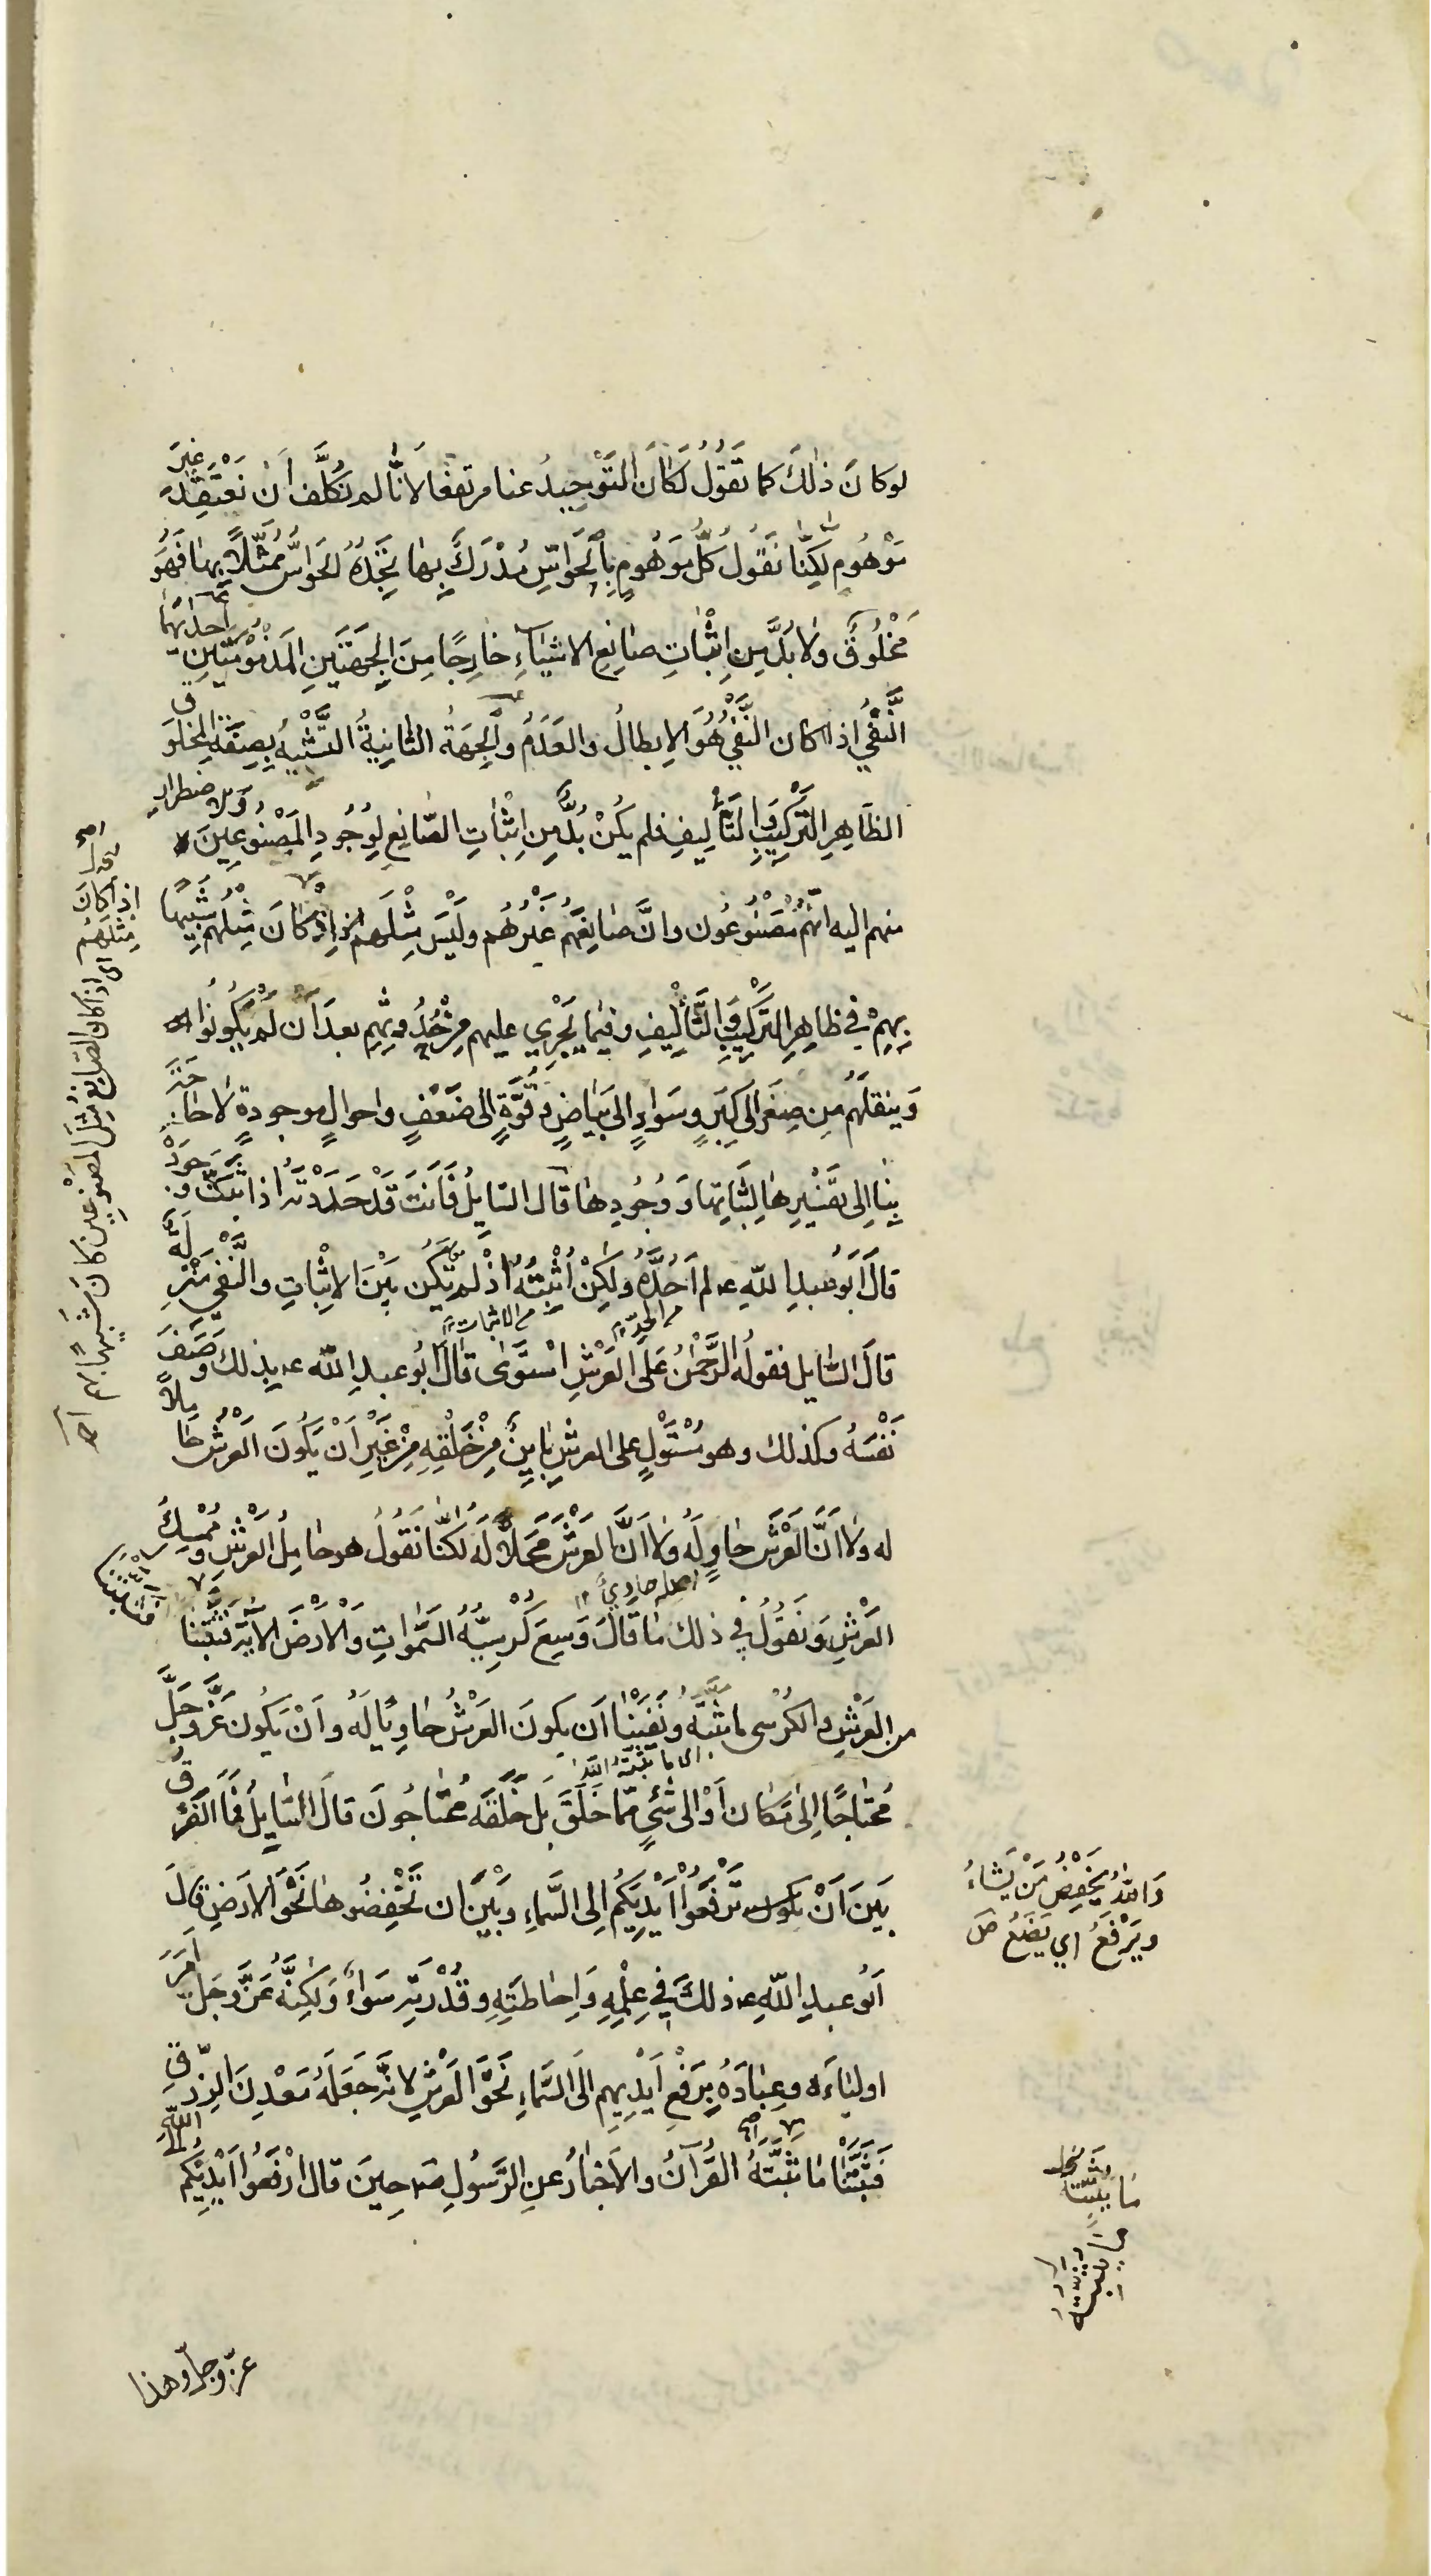 لو كانَ ذٰلِكَ كما تَقُولُ لَكَانَ التَّوْحِيدُ عنا مرتفعًا لِأَنَّا لم نُكَلَّف اَنْ نَعْتَقِدَ غيرَ
مَوْهُومٍ لٰكِنَّا نَقُولُ كُلُّ مَوْهُومٍ بِالْحَوَاسِّ مُدْرَكٌ بِهَا تَحُدُّهُ الحَوَاسُّ مُمَثَّلًا بها فَهُوَ
مَخْلُوقٌ ولا بُدَّ مِن اِثْبَاتِ صَانِعِ الاشيَآءِ خَارِجًا مِنَ الجِهَتَيْنِ المَذْمُوْمَتَيْنِ احدٰيهما
النَّفْيُ اذ كان النَّفْيُ هُوَ الابطالُ والعَدَمُ والْجِهَةُ الثَّانِيَةُ التَّشْبِيهُ بِصِفَةِ المخلوق
الظَّاهِرِ التَّرْكِيبِ وَالتَّأْلِيفِ فلم يَكُنْ بُدٌّ مِن اِثْبَاتِ الصَّانِعِ لِوُجُودِ المَصْنُوعِينَ والاضطرار
منهم اليه اَنَّهُم مَصْنُوعُون وانَّ صَانِعَهُم غَيْرُهُم ولَيْسَ مِثْلَهم اِذ كانَ مِثلُهم شَبِيهًا
بِهِمْ في ظاهِرِ التَّرْكِيبِ وَالتَّأْلِيفِ وفِيمَا يَجْرِي عليهم مِنْ حُدُوثِهِم بعدَ اَن لَمْ يَكُونُوا
وَينقلَهُم مِن صِغَرٍ الى كِبَرٍ وسَوَادٍ الى بَيَاضٍ وقُوَّةٍ الى ضَعْفٍ واحوالٍ موجودةٍ لا حاجَةَ
بِنَا اِلى تفسِيرِهَا لِثَبَاتِهَا وَوُجُودِهَا قالَ السّايلُ فَاَنتَ قَدْ حَدَدْتَهُ اذا ثبتَّ وجودَه
قالَ اَبُو عبدِ اللّهِ ع لم اَحُدَّهُ ولٰكِنْ اُثْبِتُهُ اِذْ لم تَكُن بَيْنَ الاثْبَاتِ والنَّفي مَنْزِلَةٌ
قالَ السّايل فقولُه الرَّحْمٰنُ عَلَى العَرْشِ اسْتَوٰى قالَ ابُو عبدِ اللّه ع بذلك وصَفَ
نَفْسَهُ وكذلك وهو مُسْتَوْلٍ على العرشِ بَايِنٌ مِنْ خَلْقِهِ مِنْ غَيْرِ اَنْ يَكُونَ العَرْشُ حاملًا
له ولا اَنَّ العَرْشَ حَاوٍ لَهُ ولا اَنَّ العَرْشَ مَحَلًّا لَهُ لكنَّا نَقُولُ هو حَامِلُ العَرْشِ ومُمْسِكُ
العَرْشِ وَنَقُولُ في ذلك مَا قَالَ وَسِعَ كُرْسِيُّهُ السَّمٰوَاتِ وَالْاَرْضَ الايةَ فثبَّتنا
من العَرْشِ والكُرْسى ما ثبَّتَهُ ونَفَيْنَا اَن يكونَ العَرْشُ حَاوِيًا لَهُ واَنْ يَكُون عَزَّ وجَلَّ
مُحتَاجًا اِلٰى مَكَان اَوْ الى شَيْءٍ مِمّا خَلَقَ بَل خَلْقُه مُحْتَاجُونَ قالَ السّايلُ فَمَا الفَرْقُ
بَينَ اَنْ تَرْفَعُوْا اَيْدِيَكُم اِلى السَّماءِ وبَيْنَ ان تَخْفِضُوهَا نَحْوَ الاَرَضِ قالَ
اَبُو عبدِ اللّهِ ع ذلكَ في عِلْمِهِ وَاِحَاطَتِهِ وقُدْرَتِهِ سَوَاءٌ وَلٰكِنَّهُ عَزَّ وجَلَ اَمَرَ
اولِيَآءَه وعِبَادَهُ بِرَفْعِ اَيْدِيهِم اِلَى السَّماءِ نَحْوَ العَرْشِ لِاَنَّه جَعَلَهُ مَعْدِنَ الرِّزْقِ
فَثَبَّتْنَا مَا ثَبَّتَهُ القُرآنُ والاَخبارُ عنِ الرَّسُولِ ص حِينَ قالَ ارْفَعُوا اَيْدِيَكُم اِلى اللّهِ
عزّ وجلّ وهذا
اِذا كانَ مِثْلَهُم
اى اذا كان الصّانِعُ مِثْلَ المَصْنُوعِينَ كانَ شَبِيهًا بهم
من الحدّ
من الاثبات
اصله حاويًا
اى ما يثبّته اللّه
وَاللّٰهُ يَخْفِضُ مَنْ يَشَاءُ
ويَرْفَعُ اي يَضَعُ
مَا يُثَبِّتُه